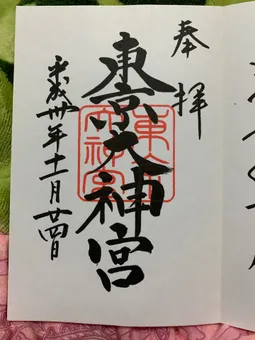 奉拝
東京大神宮
東京大神宮
平成卅年十一月廿四日